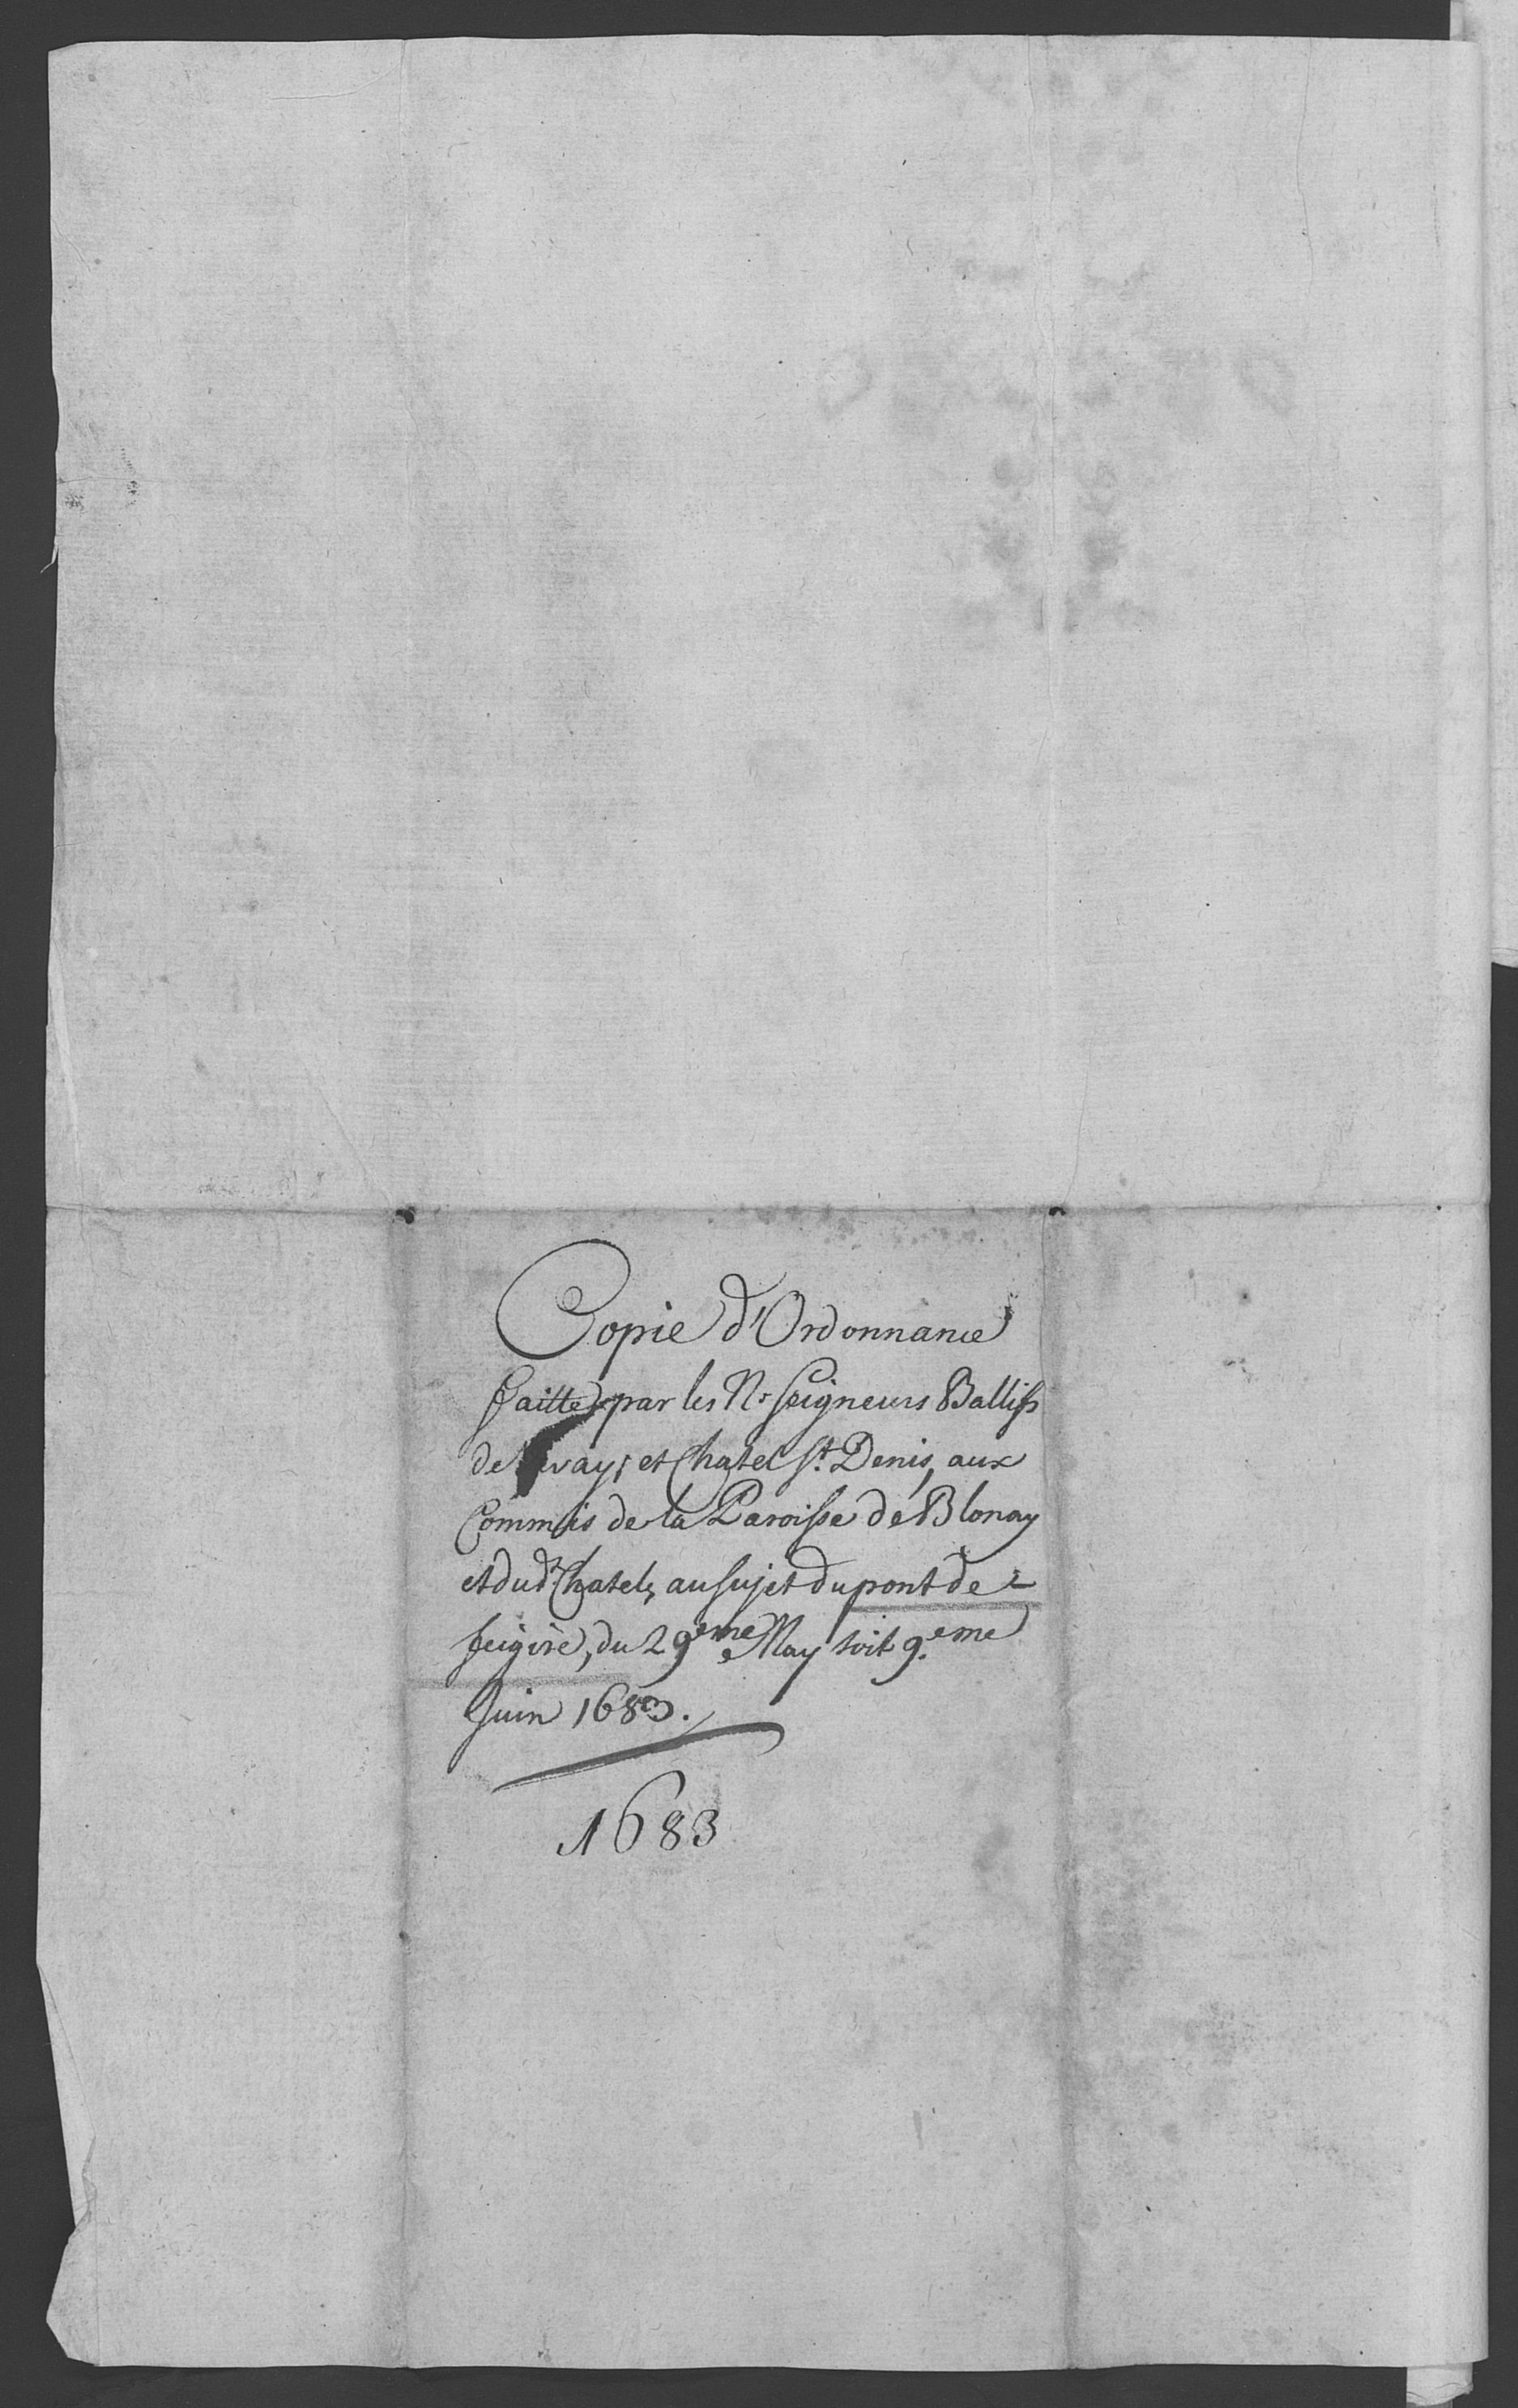 Copie d'Ordonnance
faitte par les Nr. Seigneurs Ballifs
de Vevay, et Chatel St. Denis, aux
Commis de la Paroisse de Blonay
et dudt. Chatel, au sujet du pont de
feigire, du 29eme May soit 9.eme
Juin 1683.
1683